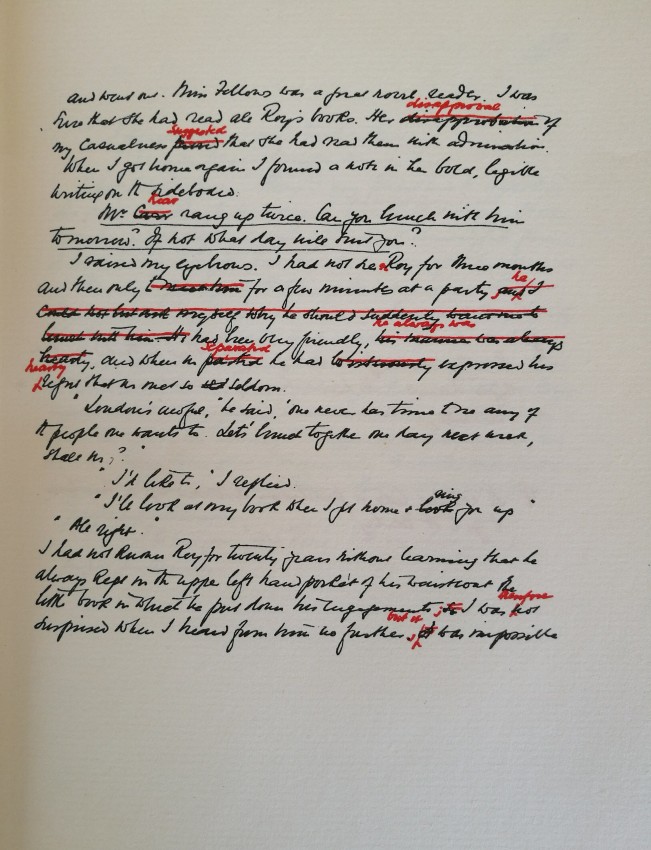 and went out. Miss Fellows was a great novel reader. I was
disapproval
sure that she had read all Roy's books. Her disapprobation of
suggested
my casualness that she had read them with admiration.
When I got home again I found a note in her bold, legible
writing on the sideboard.
Kear
Mr. Carr rang up twice. Can you lunch with him
tomorrow? If not what day will suit you?
I raised my eyebrows. I had not seen Roy for three months
he
and then only for a few minutes at a party, and I
could not but ask myself why he should suddenly want me to
he always was
lunch with him. He had been very friendly, his manner was always
separated
hearty, and when we parted he had expressed his
hearty
regret that we met so seldom.
"London's awful," he said, 'one never has time to see any of
the people one wants to. Let's lunch together one day next week,
shall we?"
"I'd like to," I replied.
ring
"I'll look at my book when I get home & look you up"
"All right."
I had not known Roy for twenty years without learning that he
always kept in the upper left hand pocket of his waistcoat the
therefore
little book in which he put down his engagements; I was not
but it
surprised when I heard from him no further. It was impossible